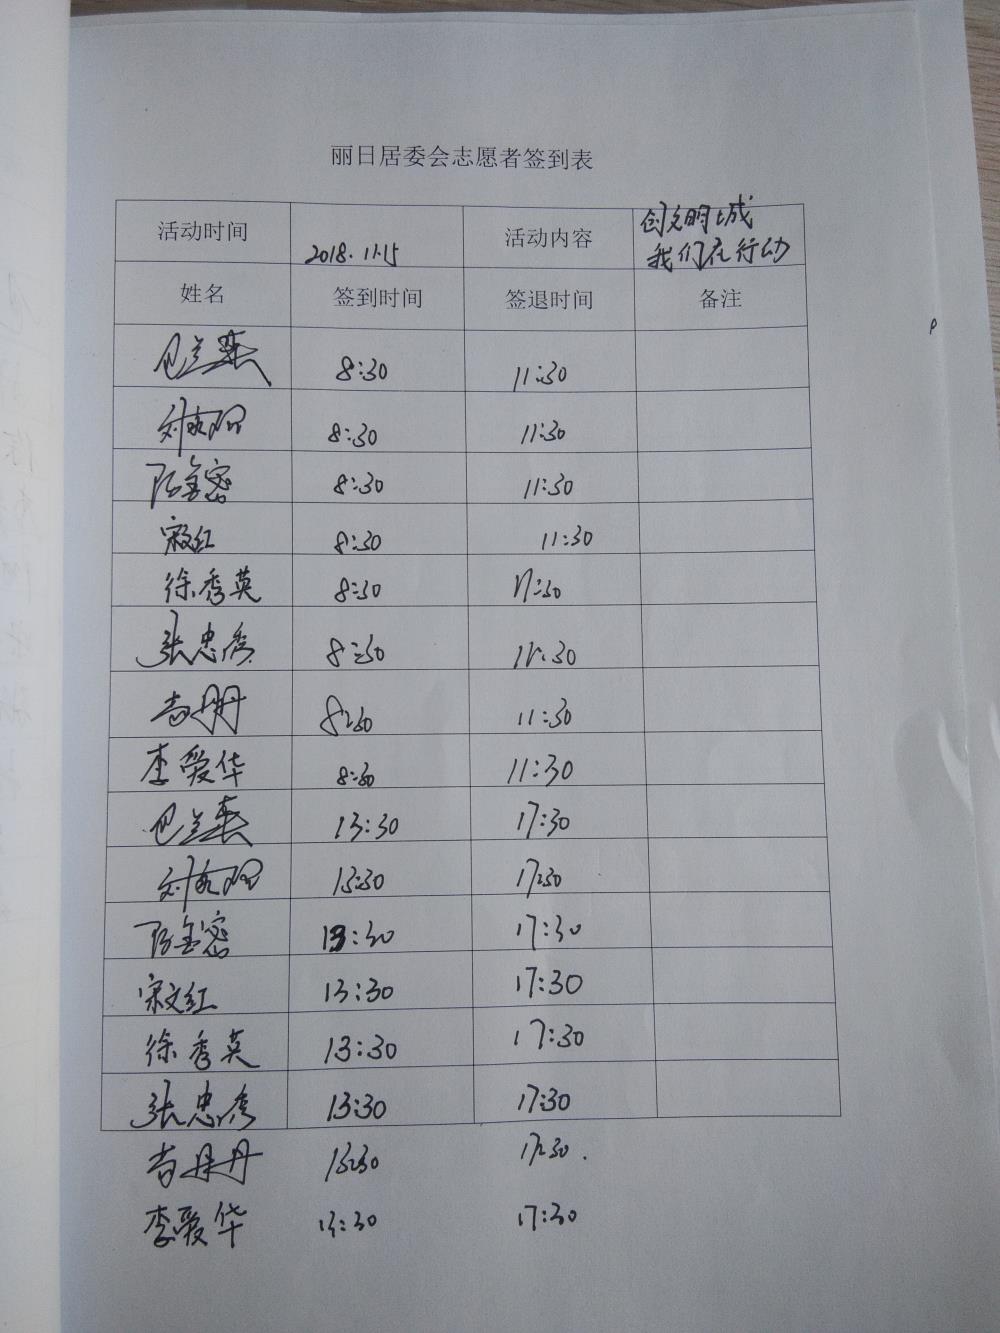 丽日居委会志愿者签到表
活动时间 2018.11.15 活动内容 创文明城
我们在行动
姓名 签到时间 签退时间 备注
8:30 11:30
刘 8:30 11:30
8:30 11:30
宋文红 8:30 11:30
徐秀英 8:30 11:30
张忠秀 8:30 11:30
丹丹 8:30 11:30
李爱华 8:30 11:30
13:30 17:30
刘 13:30 17:30
13:30 17:30
宋文红 13:30 17:30
徐秀英 13:30 17:30
张忠秀 13:30 17:30
丹丹 13:30 17:30
李爱华 13:30 17:30